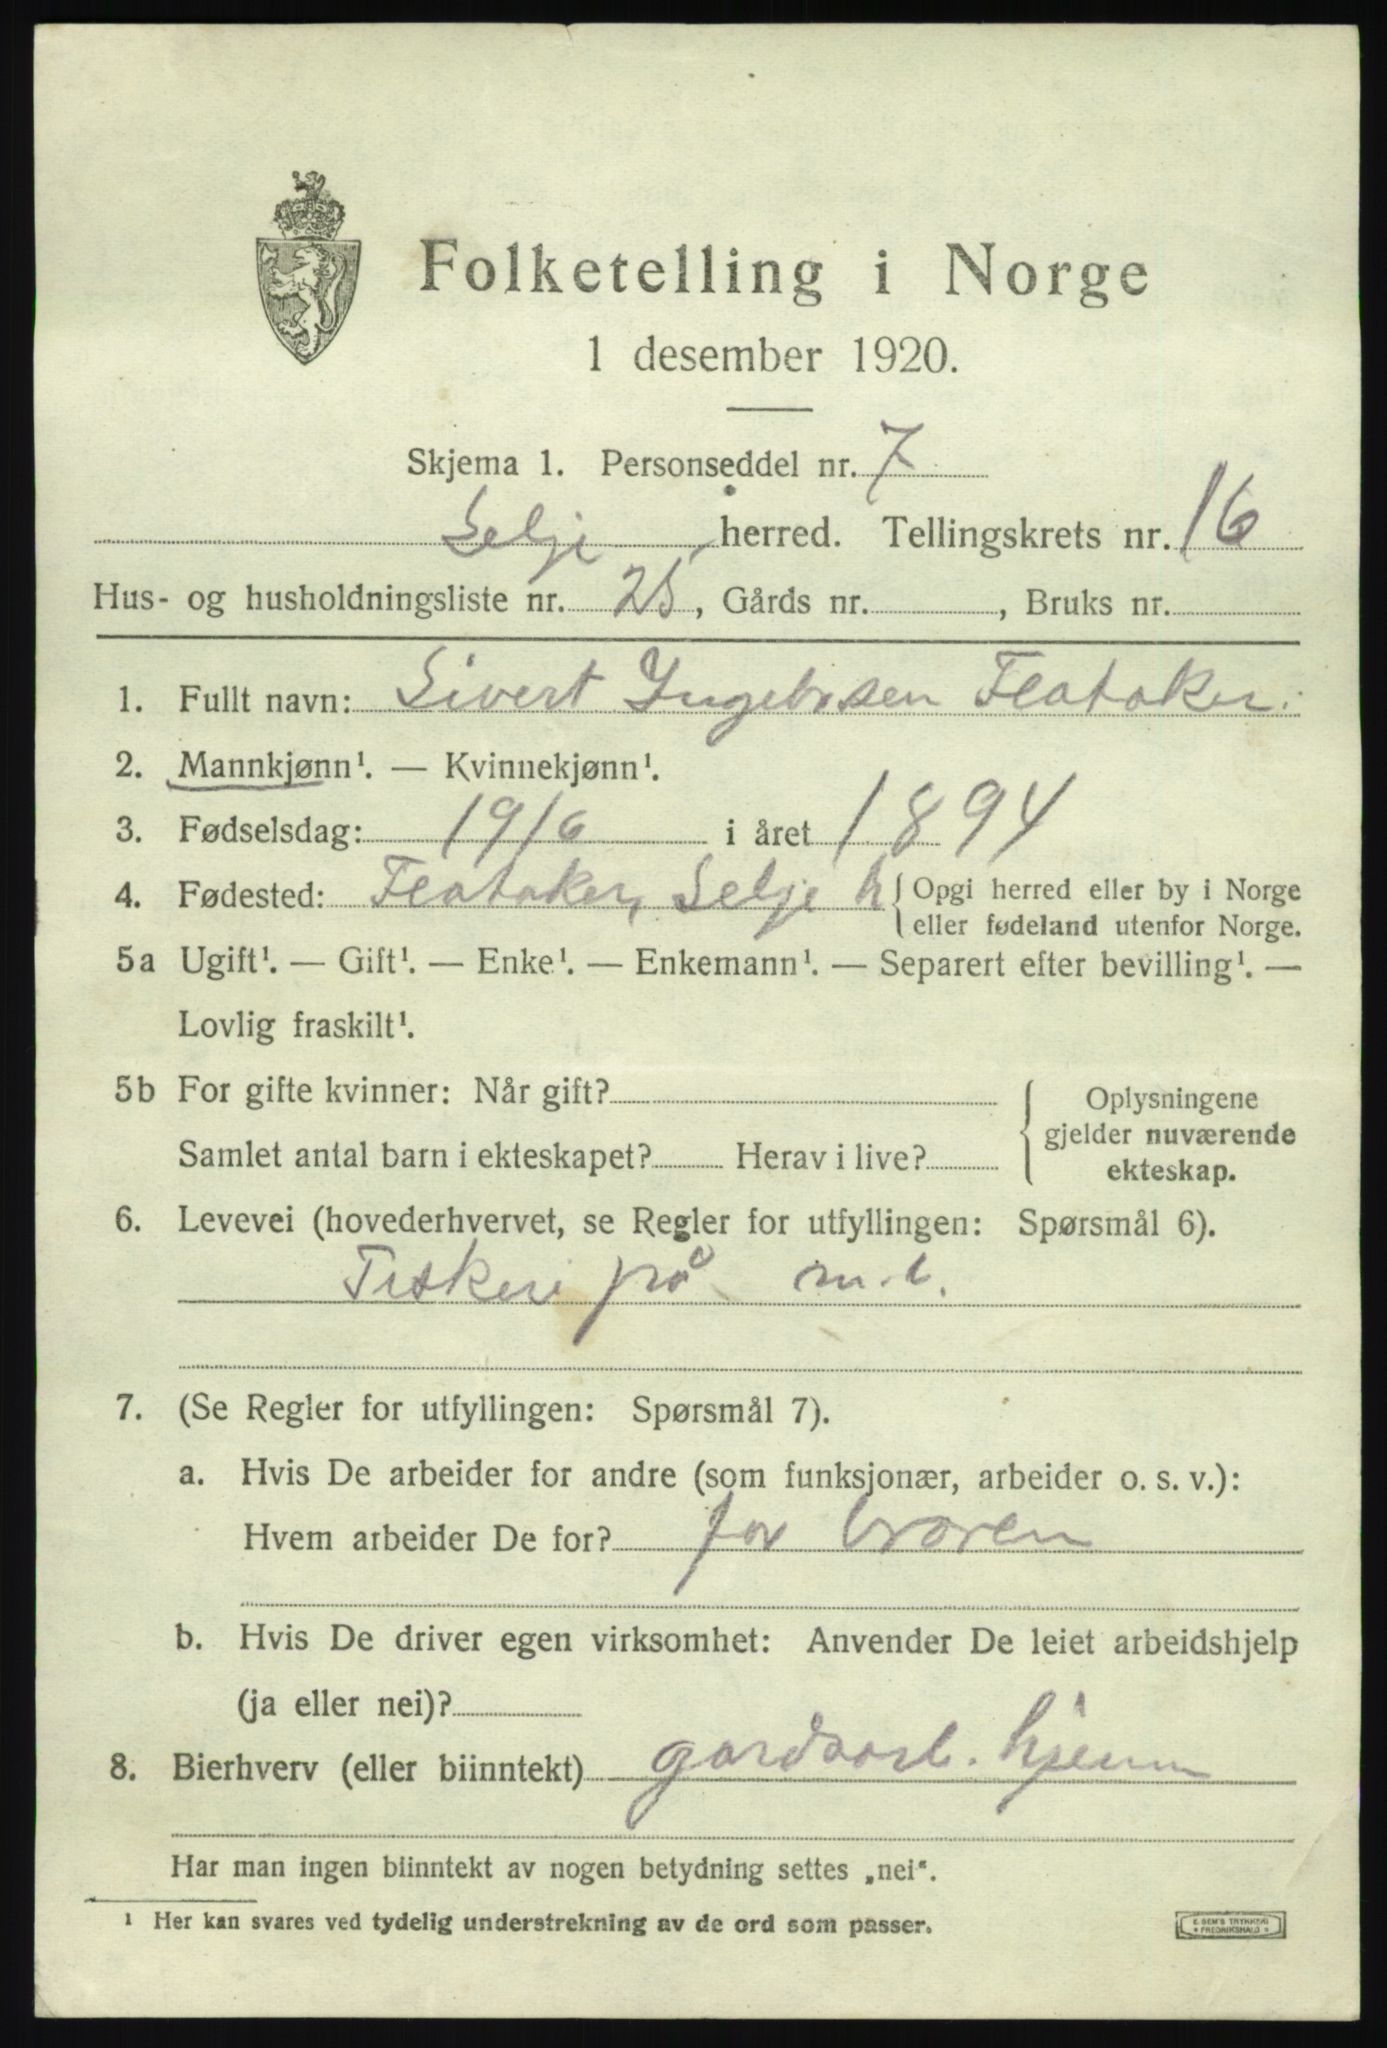 Folketelling i Norge
1 desember 1920.
Skjema 1. Personseddel nr. 7
Selje herred. Tellingskrets nr. 16
Hus- og husholdningsliste nr. 25, Gårds nr. , Bruks nr.
1. Fullt navn: Sivert Ingebrsen Flataker.
2. Mannkjønn¹. — Kvinnekjønn¹.
3. Fødselsdag: 19/6 i året 1894
4. Fødested: Flataker, Selje h { Opgi herred eller by i Norge
eller fødeland utenfor Norge.
5a Ugift¹. — Gift¹. — Enke¹. — Enkemann¹. — Separert efter bevilling¹. —
Lovlig fraskilt¹.
5b For gifte kvinner: Når gift? { Oplysningene
gjelder nuværende
Samlet antal barn i ekteskapet? Herav i live?
ekteskap.
6. Levevei (hovederhvervet, se Regler for utfyllingen: Spørsmål 6).
Fiskeri på m.b.
7. (Se Regler for utfyllingen: Spørsmål 7).
a. Hvis De arbeider for andre (som funksjonær, arbeider o. s. v.):
Hvem arbeider De for? for broren
b. Hvis De driver egen virksomhet: Anvender De leiet arbeidshjelp
(ja eller nei)?
8. Bierhverv (eller biinntekt) gardsarb. hjemm
Har man ingen biinntekt av nogen betydning settes „nei“.
¹ Her kan svares ved tydelig understrekning av de ord som passer.
E. SEM'S TRYKKERI
* FREDRIKSHALD *